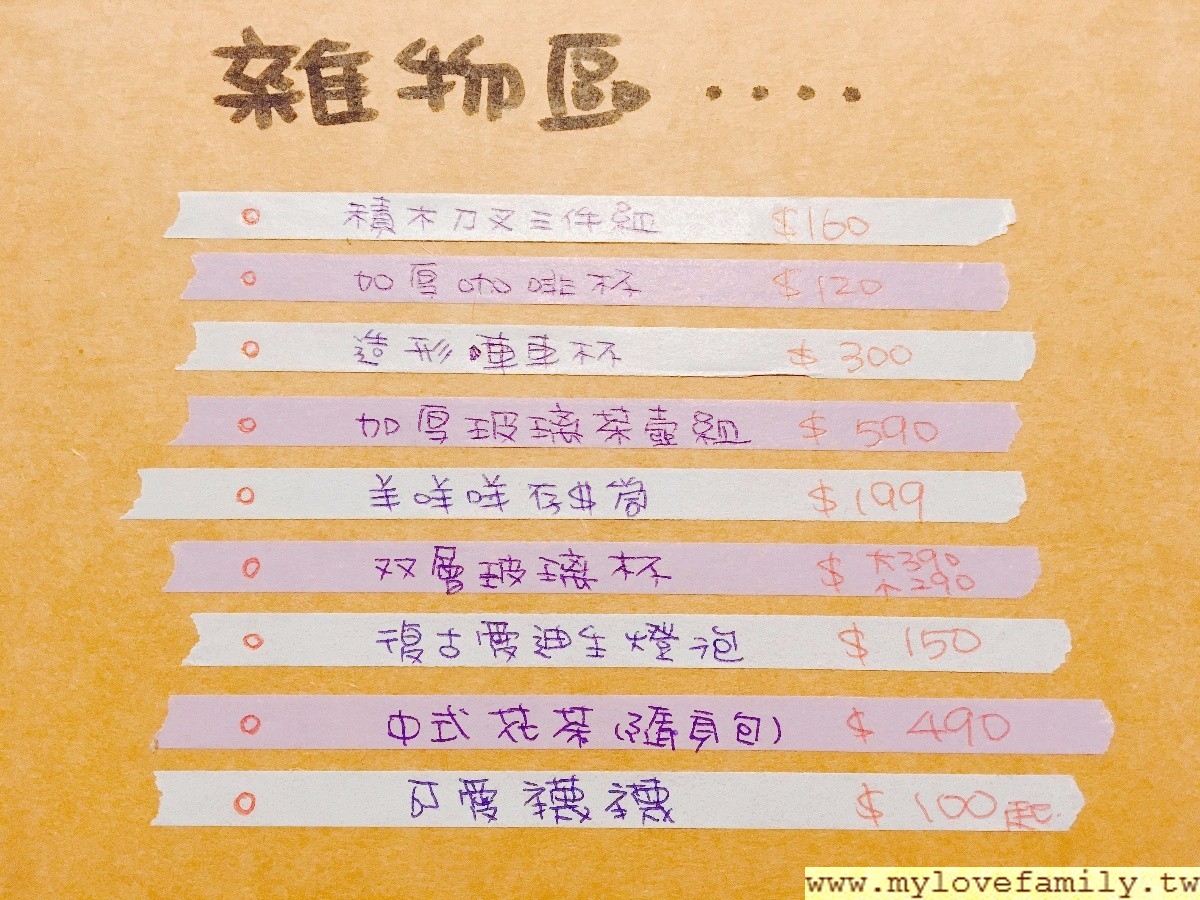 雜物區 ....
○ 積木刀叉三件組 $160
○ 加厚咖啡杯 $120
○ 造形嗶車杯 $300
○ 加厚玻璃茶壺組 $590
○ 羊咩咩存$筒 $199
○ 双層玻璃杯 $ 大390 小290
○ 復古愛迪生燈泡 $150
○ 中式花茶(隨身包) $490
○ 可愛襪襪 $100起
www.mylovefamily.tw